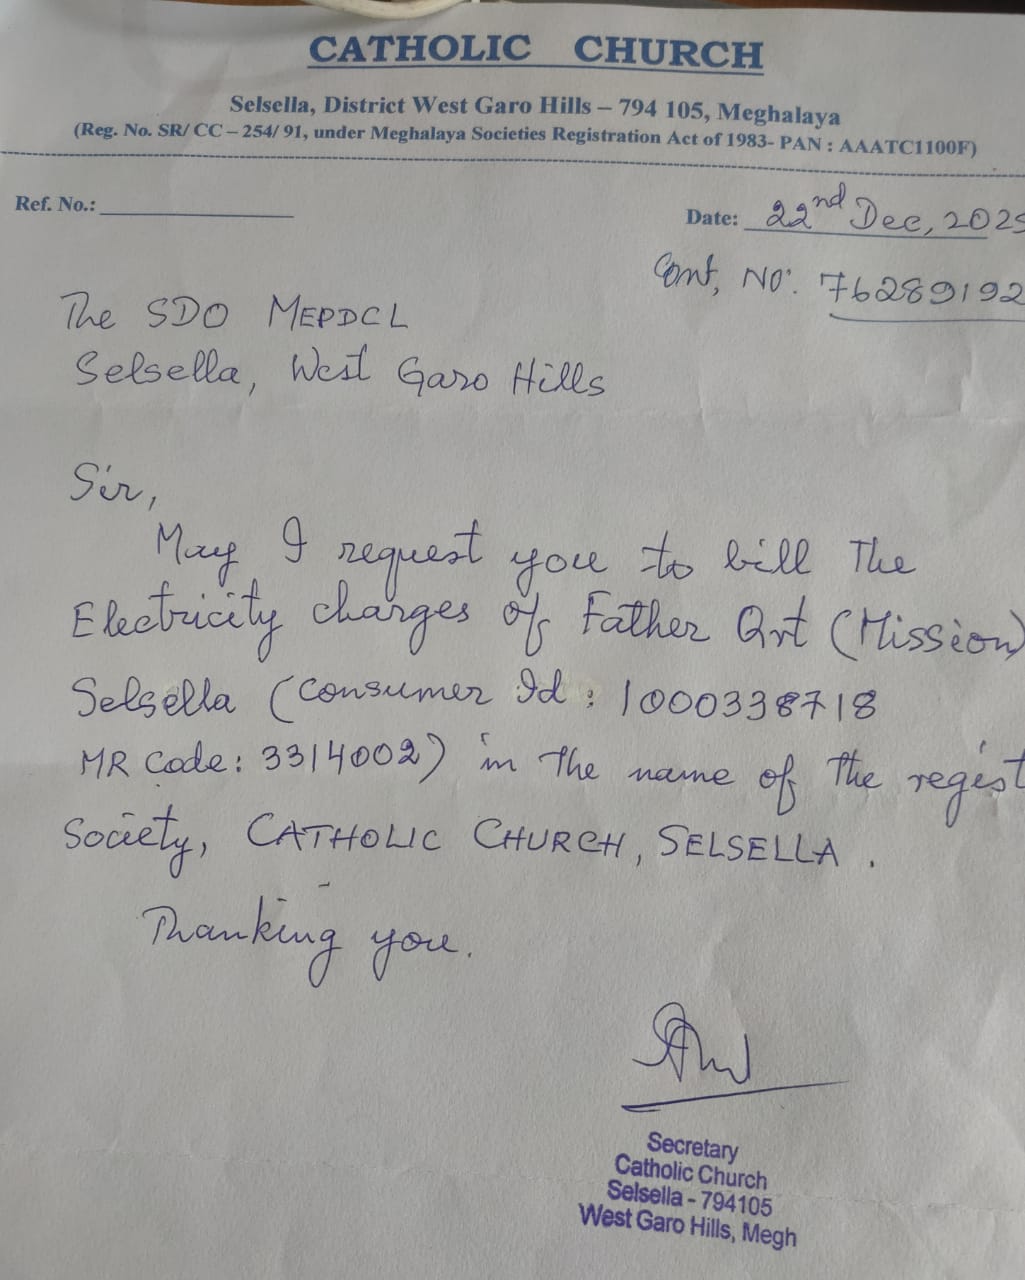 CATHOLIC CHURCH
Selsella, District West Garo Hills – 794 105, Meghalaya
(Reg. No. SR/ CC – 254/ 91, under Meghalaya Societies Registration Act of 1983- PAN : AAATC1100F)
Ref. No.:
Date: 22nd Dec, 2025
Cont, No: 76289192
The SDO MEPDCL
Selsella, West Garo Hills
Sir,
May I request you to bill The
Electricity charges of Father Qrt (Mission)
Selsella (Consumer Id: 1000338718
MR Code: 3314002) in The name of The regist
Society, CATHOLIC CHURCH, SELSELLA.
Thanking you.
Secretary
Catholic Church
Selsella - 794105
West Garo Hills, Megh